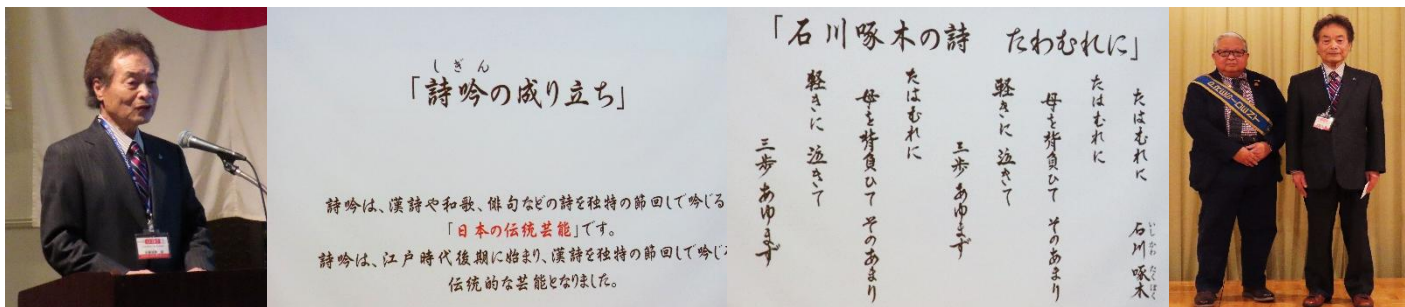 しぎん
「詩吟の成り立ち」
詩吟は、漢詩や和歌、俳句などの詩を独特の節回しで吟じる
「日本の伝統芸能」です。
詩吟は、江戸時代後期に始まり、漢詩を独特の節回しで吟じ
伝統的な芸能となりました。
「石川啄木の詩 たわむれに」
たはむれに
石川啄木
いしかわ たくぼく
たはむれに
母を背負ひて そのあまり
軽きに 泣きて
三歩 あゆまず
たはむれに
母を背負ひて そのあまり
軽きに 泣きて
三歩 あゆまず